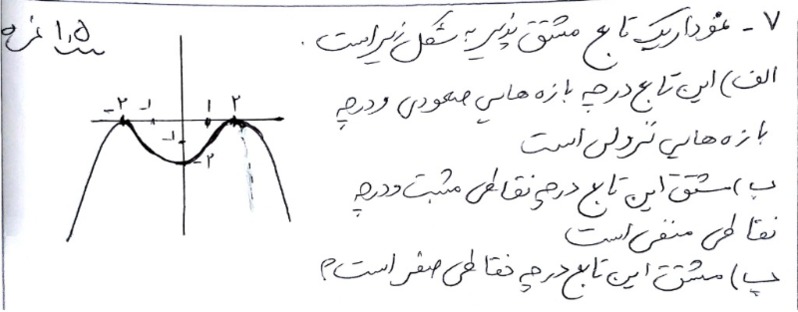 ۷ - نمودار یک تابع مشتق پذیر به شکل زیر است . ۱,۵ نمره
الف) این تابع در چه بازه هایی صعودی و در چه
بازه هایی نزولی است
ب) مشتق این تابع در چه نقاطی مثبت و در چه
نقاطی منفی است
پ) مشتق این تابع در چه نقاطی صفر است؟
-۲ -۱ ۱ ۲
-۱
-۲